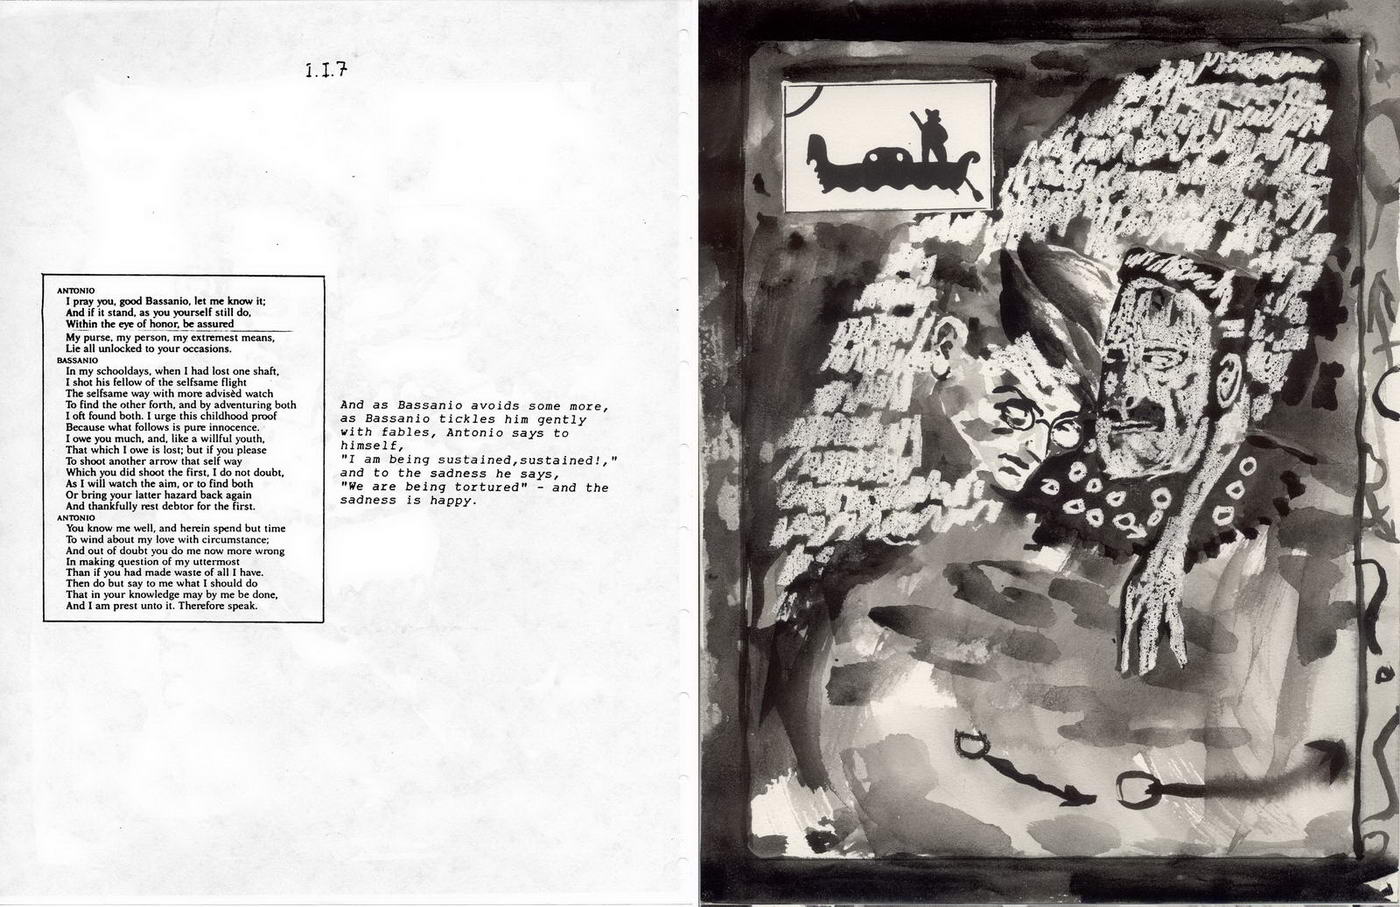 I.I.7
ANTONIO
I pray you, good Bassanio, let me know it;
And if it stand, as you yourself still do,
Within the eye of honor, be assured
My purse, my person, my extremest means,
Lie all unlocked to your occasions.
BASSANIO
In my schooldays, when I had lost one shaft,
I shot his fellow of the selfsame flight
The selfsame way with more advisèd watch
To find the other forth, and by adventuring both
I oft found both. I urge this childhood proof
Because what follows is pure innocence.
I owe you much, and, like a willful youth,
That which I owe is lost; but if you please
To shoot another arrow that self way
Which you did shoot the first, I do not doubt,
As I will watch the aim, or to find both
Or bring your latter hazard back again
And thankfully rest debtor for the first.
ANTONIO
You know me well, and herein spend but time
To wind about my love with circumstance;
And out of doubt you do me now more wrong
In making question of my uttermost
Than if you had made waste of all I have.
Then do but say to me what I should do
That in your knowledge may by me be done,
And I am prest unto it. Therefore speak.
And as Bassanio avoids some more,
as Bassanio tickles him gently
with fables, Antonio says to
himself,
"I am being sustained,sustained!,"
and to the sadness he says,
"We are being tortured" - and the
sadness is happy.